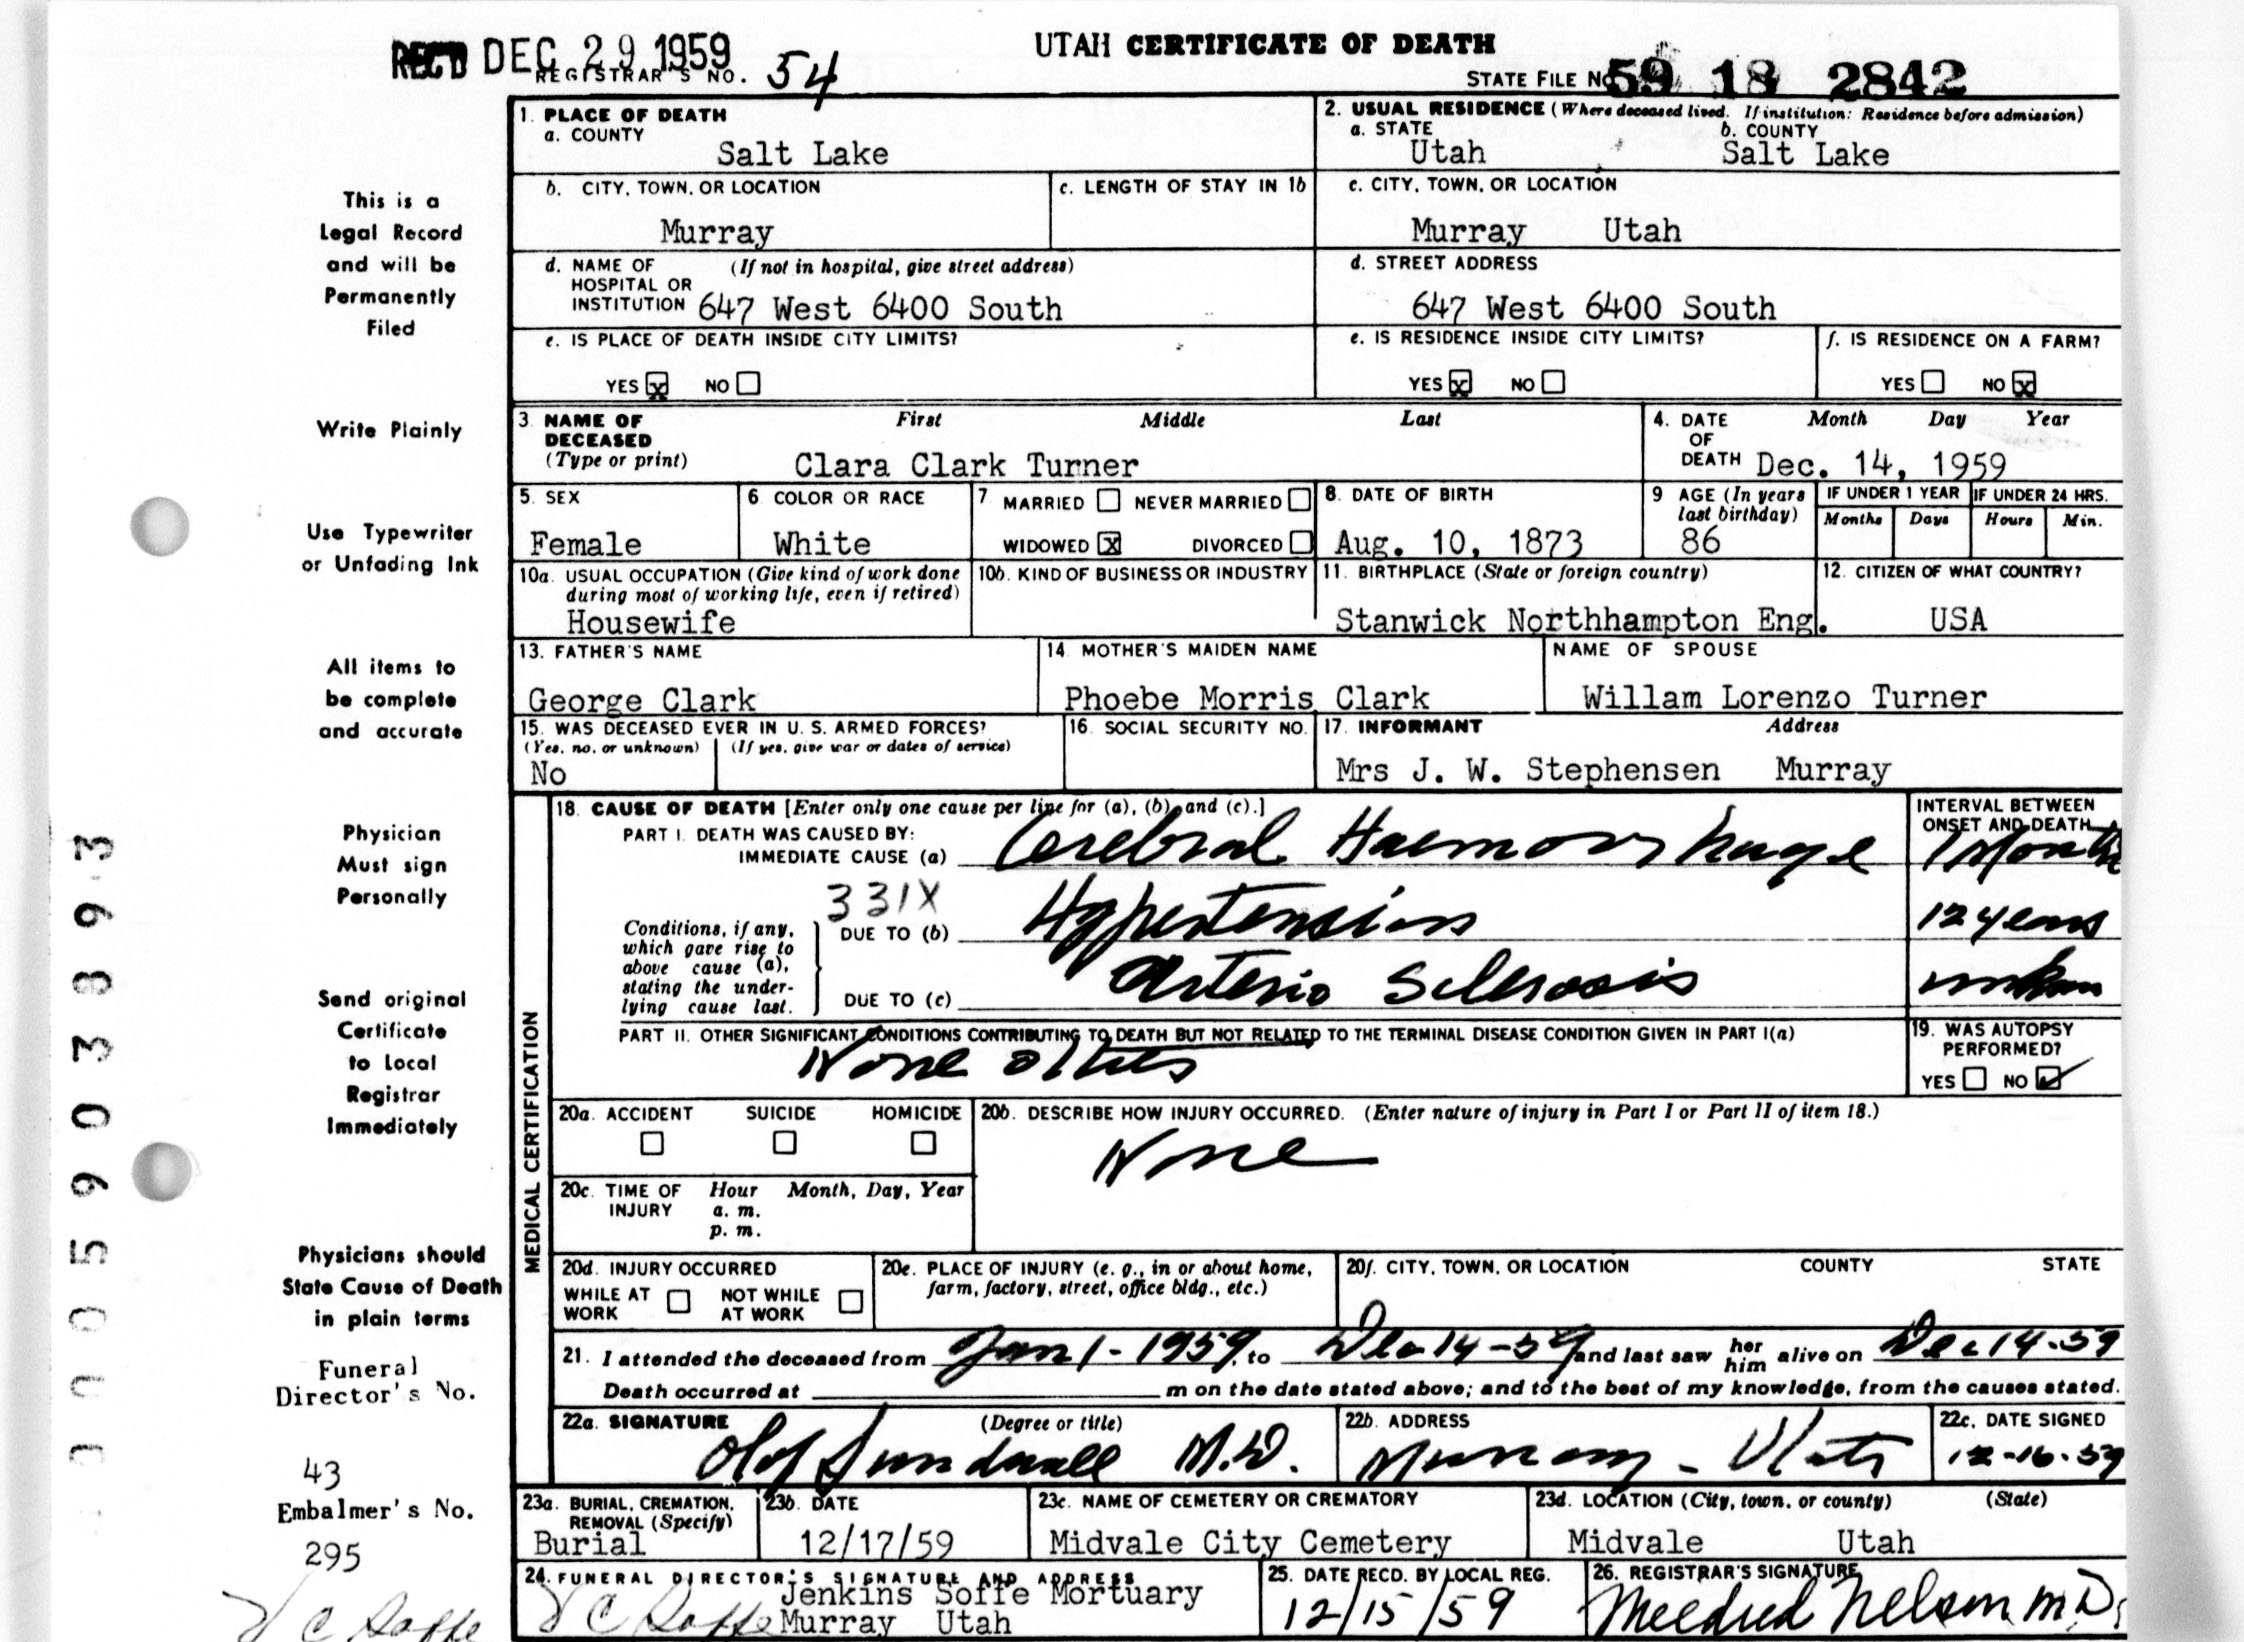 REC'D DEC 29 1959
UTAH CERTIFICATE OF DEATH
REGISTRAR'S NO. 54
STATE FILE NO. 59 18 2842
1. PLACE OF DEATH
a. COUNTY
Salt Lake
2. USUAL RESIDENCE (Where deceased lived. If institution: Residence before admission)
a. STATE b. COUNTY
Utah Salt Lake
b. CITY, TOWN, OR LOCATION
Murray
c. LENGTH OF STAY IN 1b
c. CITY, TOWN, OR LOCATION
Murray Utah
d. NAME OF (If not in hospital, give street address)
HOSPITAL OR
INSTITUTION 647 West 6400 South
d. STREET ADDRESS
647 West 6400 South
e. IS PLACE OF DEATH INSIDE CITY LIMITS?
YES x NO
e. IS RESIDENCE INSIDE CITY LIMITS?
YES x NO
f. IS RESIDENCE ON A FARM?
YES NO x
3. NAME OF DECEASED (Type or print)
First Middle Last
Clara Clark Turner
4. DATE OF DEATH
Month Day Year
Dec. 14, 1959
5. SEX
Female
6. COLOR OR RACE
White
7 MARRIED NEVER MARRIED
WIDOWED x DIVORCED
8. DATE OF BIRTH
Aug. 10, 1873
9 AGE (In years last birthday)
86
IF UNDER 1 YEAR
Months Days
IF UNDER 24 HRS.
Hours Min.
10a. USUAL OCCUPATION (Give kind of work done
during most of working life, even if retired)
Housewife
10b. KIND OF BUSINESS OR INDUSTRY
11. BIRTHPLACE (State or foreign country)
Stanwick Northhampton Eng.
12. CITIZEN OF WHAT COUNTRY?
USA
13. FATHER'S NAME
George Clark
14. MOTHER'S MAIDEN NAME
Phoebe Morris Clark
NAME OF SPOUSE
Willam Lorenzo Turner
15. WAS DECEASED EVER IN U. S. ARMED FORCES?
(Yes, no, or unknown) (If yes, give war or dates of service)
No
16. SOCIAL SECURITY NO.
17. INFORMANT Address
Mrs J. W. Stephensen Murray
MEDICAL CERTIFICATION
18. CAUSE OF DEATH [Enter only one cause per line for (a), (b), and (c).]
PART I. DEATH WAS CAUSED BY:
IMMEDIATE CAUSE (a) Cerebral Haemorrhage
INTERVAL BETWEEN
ONSET AND DEATH
1 Month
331X
Conditions, if any,
which gave rise to
above cause (a),
stating the under-
lying cause last.
DUE TO (b) Hypertension
12 years
DUE TO (c) Arterio Sclerosis
PART II. OTHER SIGNIFICANT CONDITIONS CONTRIBUTING TO DEATH BUT NOT RELATED TO THE TERMINAL DISEASE CONDITION GIVEN IN PART I(a)
None
19. WAS AUTOPSY
PERFORMED?
YES NO ✓
20a. ACCIDENT SUICIDE HOMICIDE
20b. DESCRIBE HOW INJURY OCCURRED. (Enter nature of injury in Part I or Part II of item 18.)
None
20c. TIME OF INJURY
Hour Month, Day, Year
a. m.
p. m.
20d. INJURY OCCURRED
WHILE AT WORK NOT WHILE AT WORK
20e. PLACE OF INJURY (e. g., in or about home,
farm, factory, street, office bldg., etc.)
20f. CITY, TOWN, OR LOCATION COUNTY STATE
21. I attended the deceased from Jan 1 - 1959, to Dec 14 - 59 and last saw her him alive on Dec 14 - 59
Death occurred at m on the date stated above; and to the best of my knowledge, from the causes stated.
22a. SIGNATURE (Degree or title)
Olof Sundwall M.D.
22b. ADDRESS
Murray - Utah
22c. DATE SIGNED
12-16-59
23a. BURIAL, CREMATION,
REMOVAL (Specify)
Burial
23b. DATE
12/17/59
23c. NAME OF CEMETERY OR CREMATORY
Midvale City Cemetery
23d. LOCATION (City, town, or county) (State)
Midvale Utah
24. FUNERAL DIRECTOR'S SIGNATURE AND ADDRESS
Jenkins Soffe Mortuary
Murray Utah
V C Soffe
25. DATE RECD. BY LOCAL REG.
12/15/59
26. REGISTRAR'S SIGNATURE
Mildred Nelson M.D.
This is a
Legal Record
and will be
Permanently
Filed
Write Plainly
Use Typewriter
or Unfading Ink
All items to
be complete
and accurate
Physician
Must sign
Personally
Send original
Certificate
to Local
Registrar
Immediately
Physicians should
State Cause of Death
in plain terms
Funeral
Director's No.
43
Embalmer's No.
295
V C Soffe